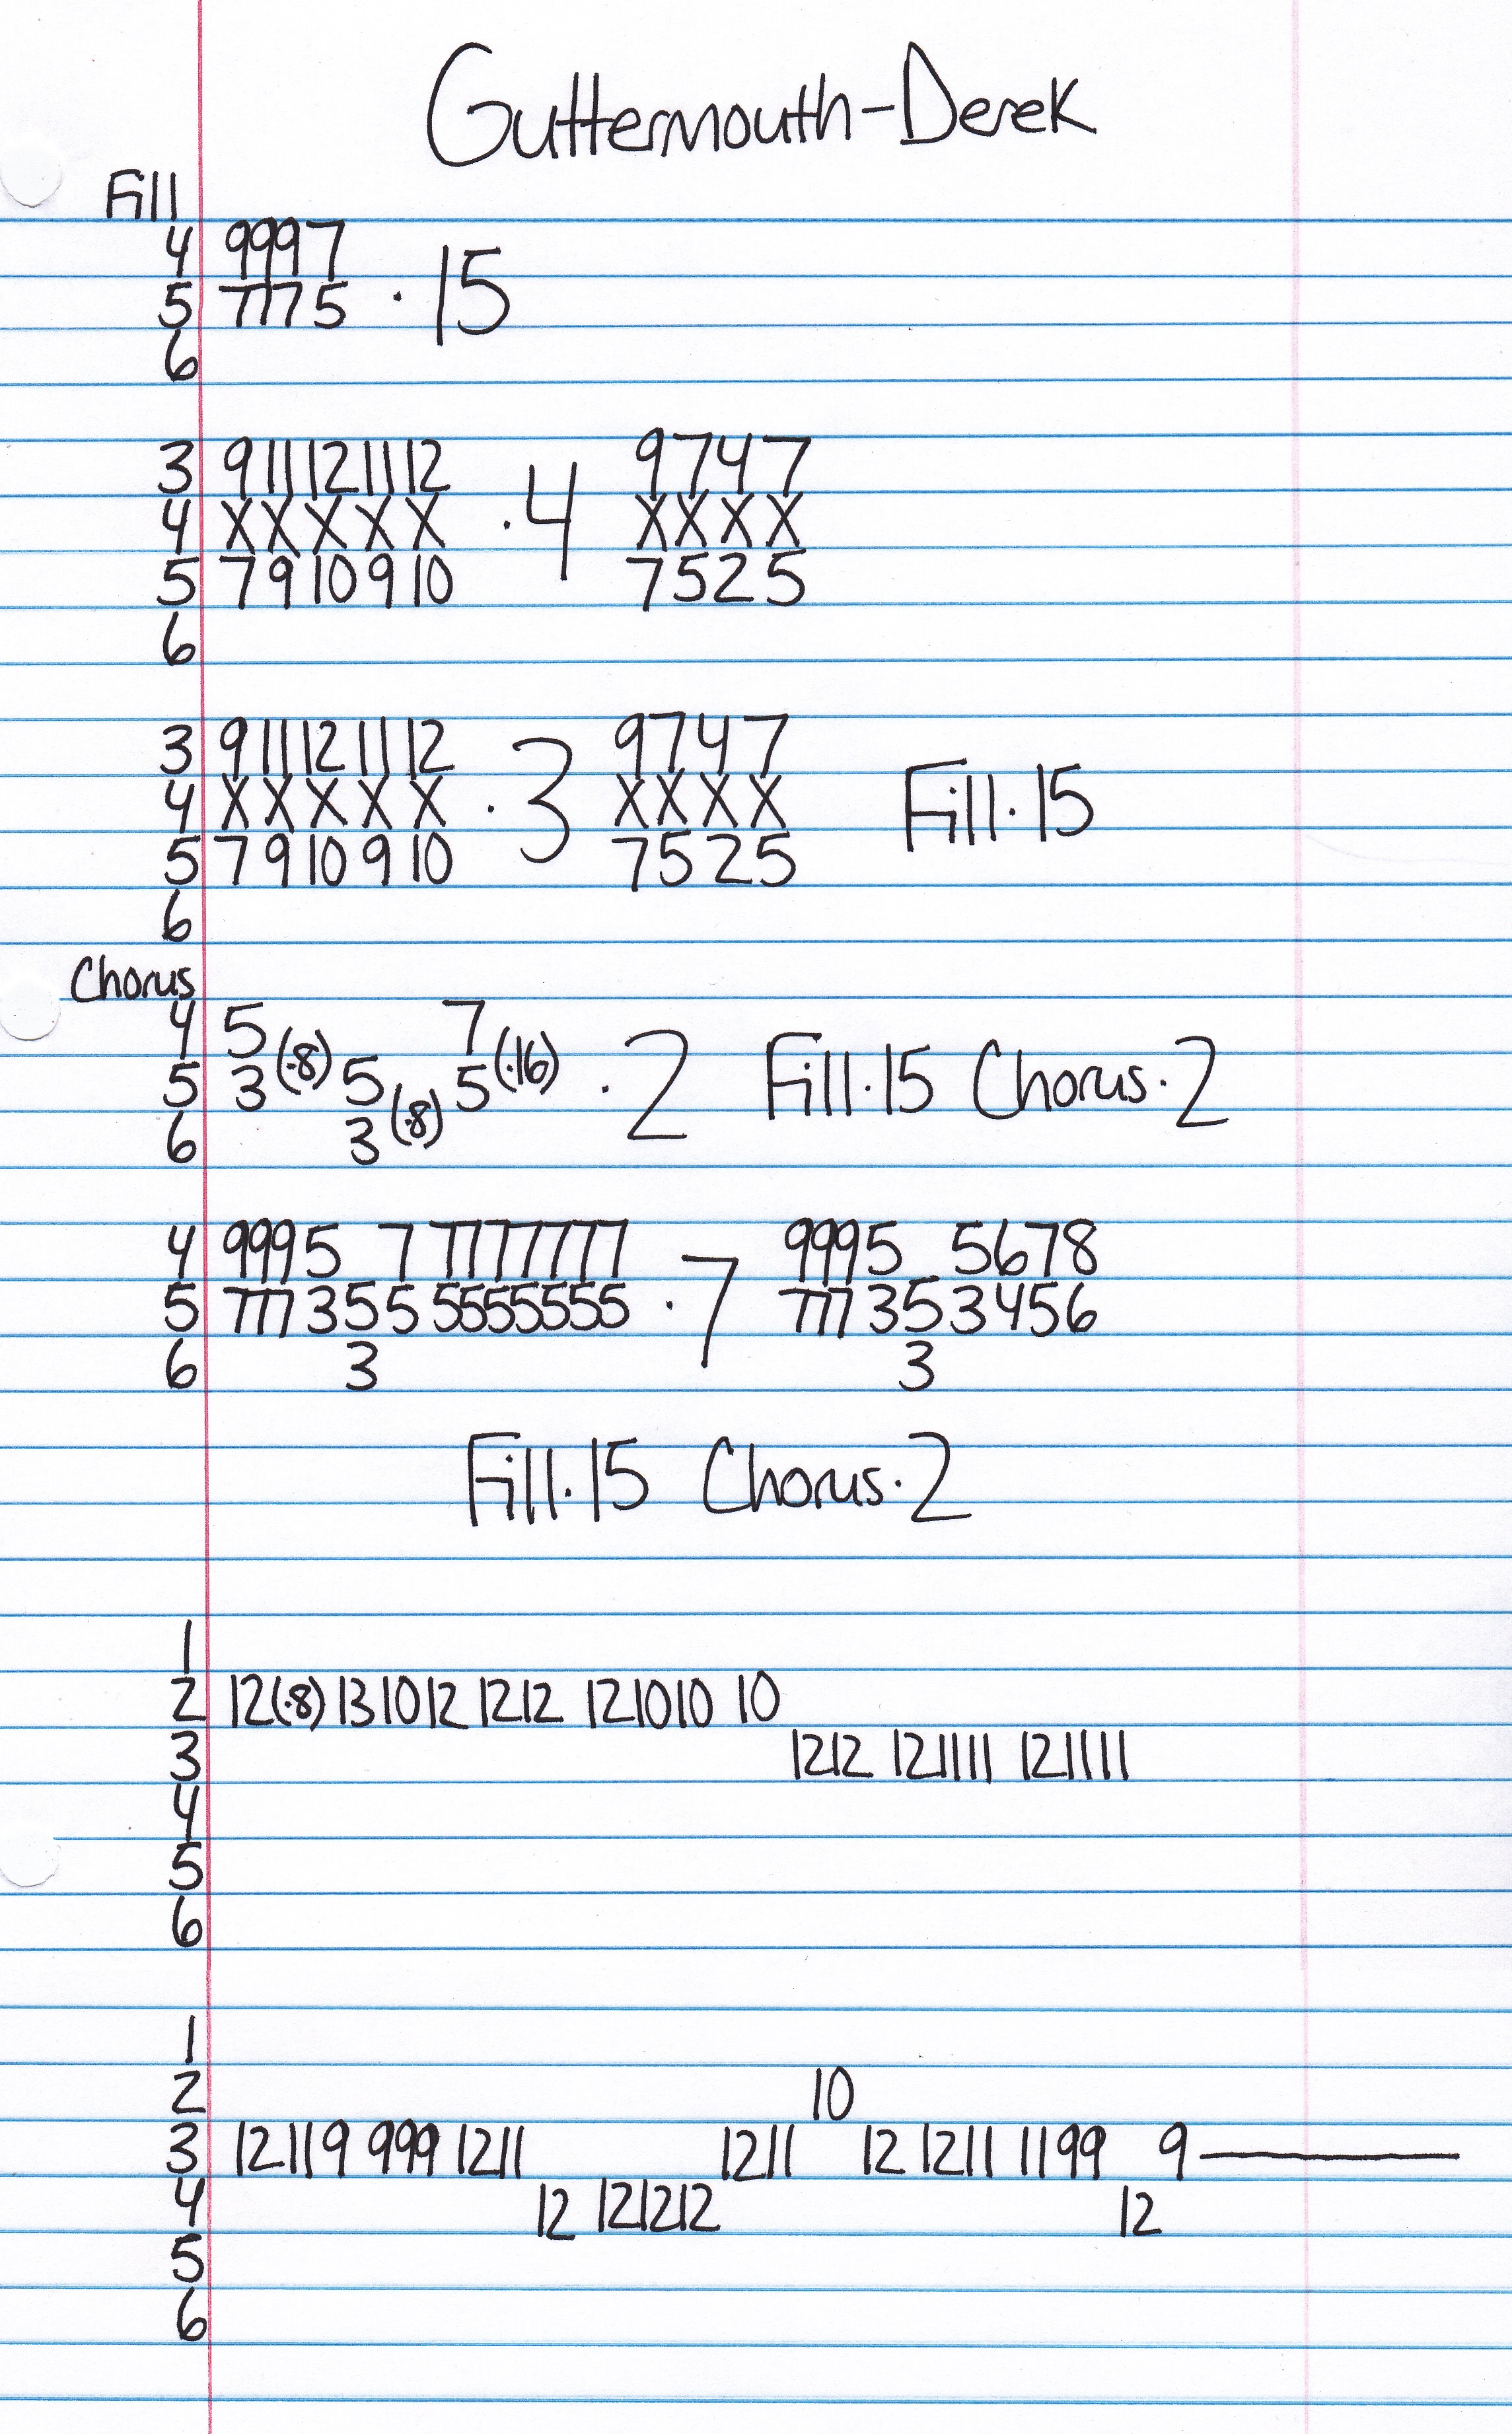 Guttermouth-Derek
Fill
4 9997
5 7775 · 15
6
3 9 11 12 11 12 9747
4 X X X X X · 4 X X X X
5 7 9 10 9 10 7525
6
3 9 11 12 11 12 9747
4 X X X X X · 3 X X X X Fill · 15
5 7 9 10 9 10 7525
6
Chorus
4 5 7
5 3 (·8) 5 5 (·16) · 2 Fill · 15 Chorus · 2
6 3 (·8)
4 9995 7 7777777 9995 5678
5 777355 5555555 · 7 77735 3456
6 3 3
Fill · 15 Chorus · 2
1
2 12(·8) 13 10 12 12 12 12 10 10 10
3 12 12 12 11 11 12 11 11
4
5
6
1
2 10
3 12 11 9 999 12 11 12 11 12 12 11 11 9 9 9
4 12 12 12 12 12
5
6